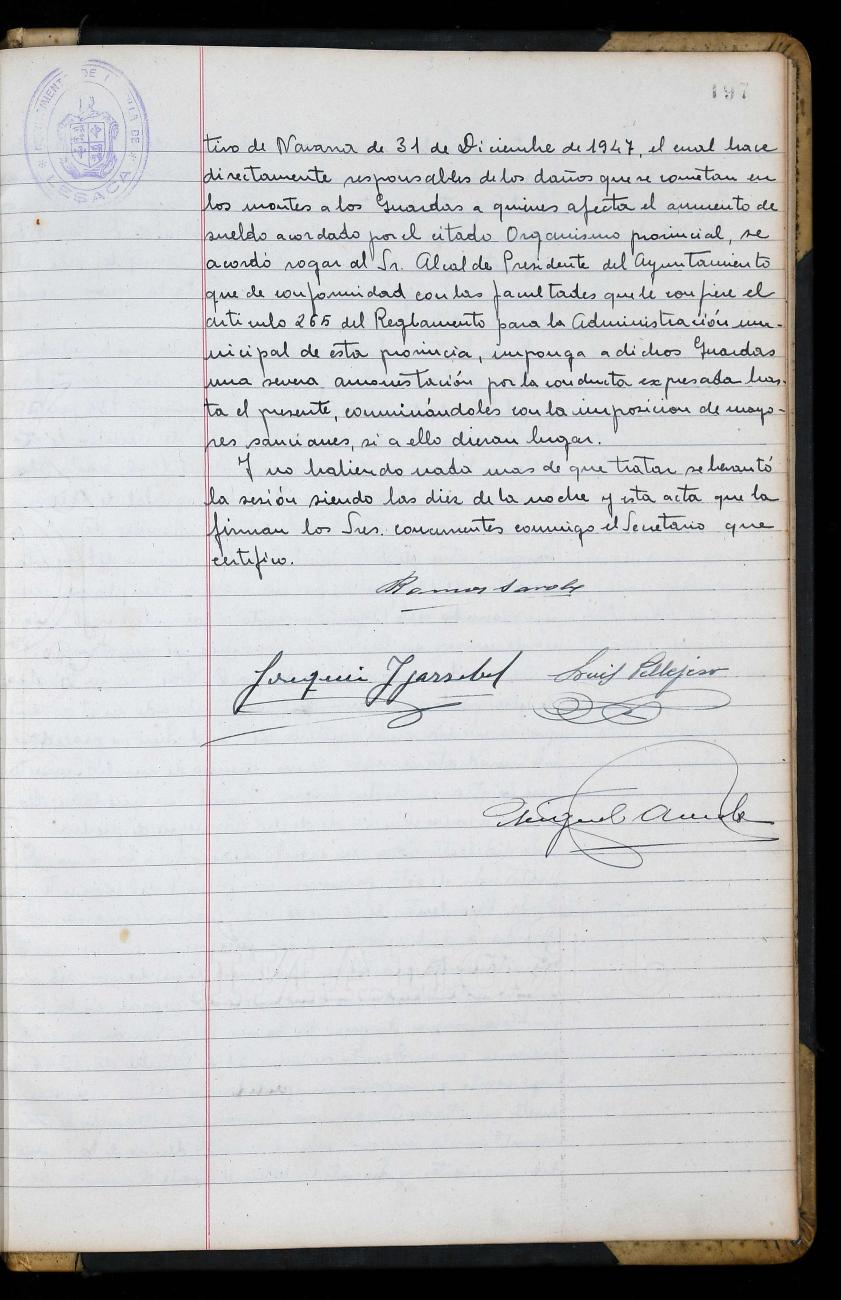 197
LESACA
tivo de Navarra de 31 de Diciembre de 1947, el cual hace
directamente responsables de los daños que se cometan en
los montes a los Guardas a quienes afecta el aumento de
sueldo acordado por el citado Organismo provincial, se
acordó rogar al Sr. Alcalde Presidente del Ayuntamiento
que de conformidad con las facultades que le confiere el
articulo 265 del Reglamento para la Administración mu-
nicipal de esta provincia, imponga a dichos Guardas
una severa amonestación por la conducta expresada has-
ta el presente, conminándoles con la imposicion de mayo-
res sanciones, si a ello dieran lugar.
Y no habiendo nada mas de que tratar se levantó
la sesión siendo las diez de la noche y esta acta que la
firman los Sres. concurrentes conmigo el Secretario que
certifico.
Joaquin
Luis Pellejero
Miguel